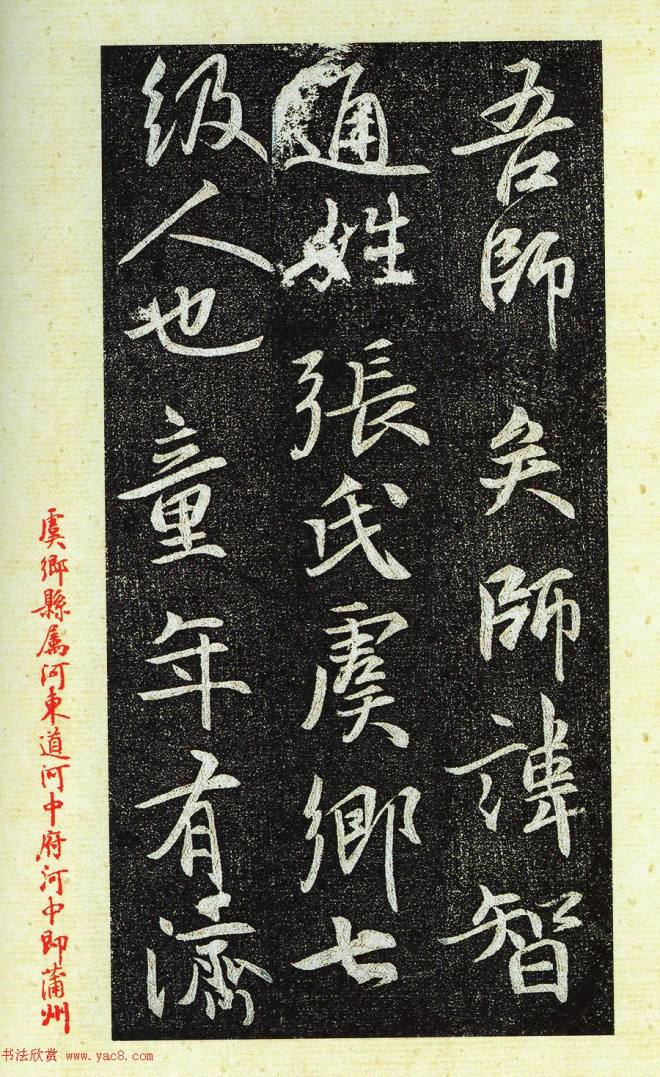 吾師矣師諱智
通姓張氏虞鄉七
級人也童年有濟
虞鄉縣屬河東道河中府河中即蒲州
书法欣赏 www.yac8.com